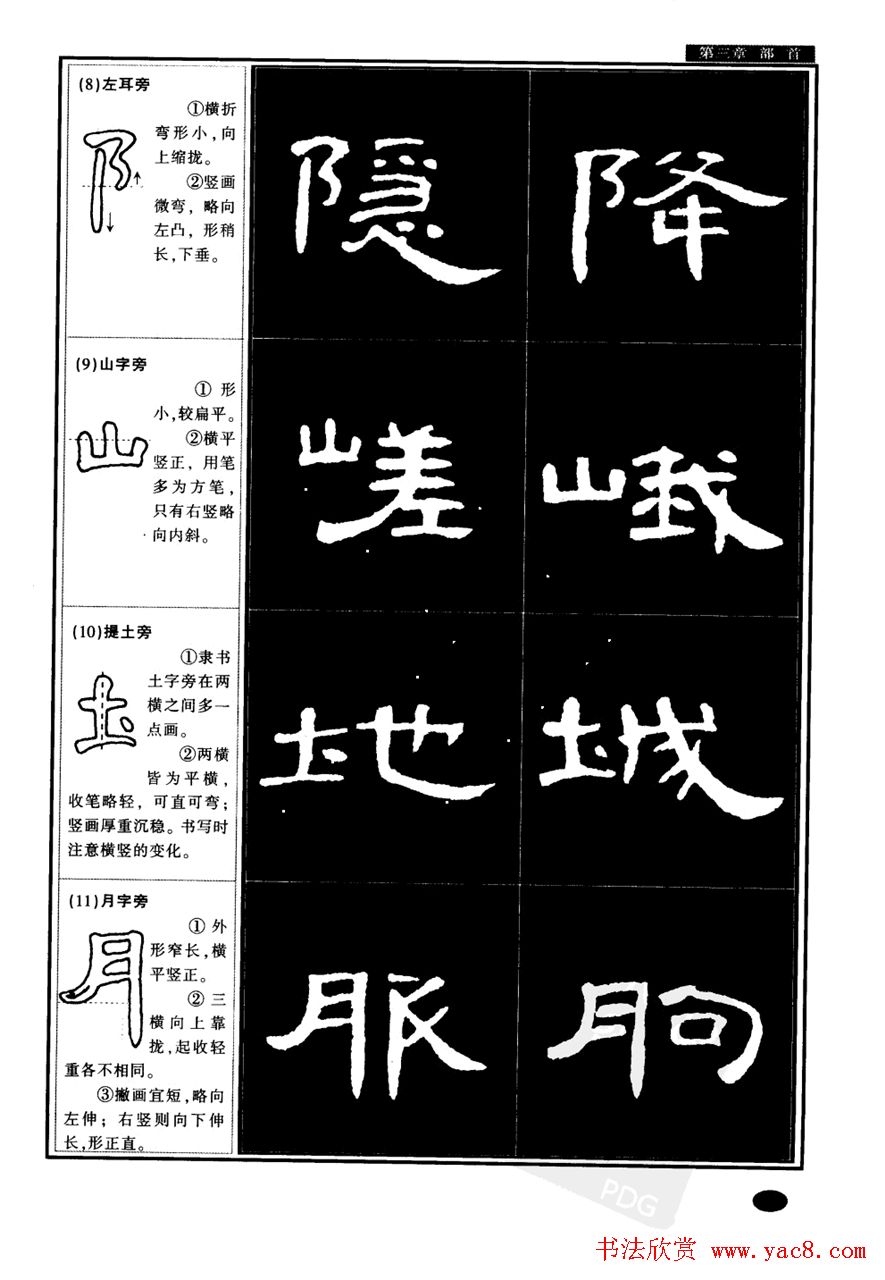 第三章 部 首
(8)左耳旁
①横折
弯形小,向
上缩拢。
②竖画
微弯, 略向
左凸, 形稍
长,下垂。
阝
隱 降
(9)山字旁
① 形
小,较扁平。
②横平
竖正, 用笔
多为方笔,
只有右竖略
向内斜。
山
嵯 峨
(10)提土旁
①隶书
土字旁在两
横之间多一
点画。
②两横
皆为平横,
收笔略轻, 可直可弯;
竖画厚重沉稳。书写时
注意横竖的变化。
圡
地 城
(11)月字旁
① 外
形窄长,横
平竖正。
② 三
横向上靠
拢,起收轻
重各不相同。
③撇画宜短,略向
左伸; 右竖则向下伸
长,形正直。
月
服 朐
PDG
书法欣赏 www.yac8.com